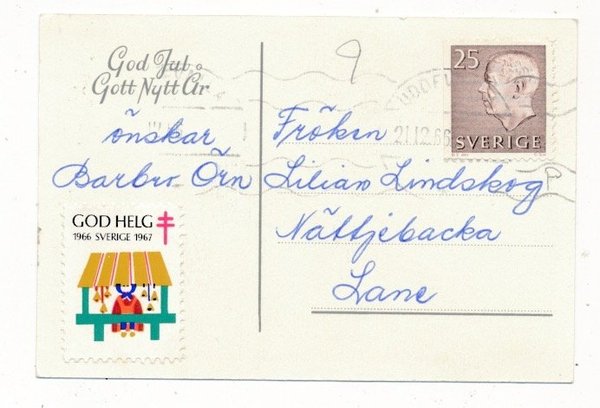 God Jul o
Gott Nytt År
önskar
Barbro Örn
GOD HELG
1966 SVERIGE 1967
9
25
SVERIGE
21.12.66
Fröken
Lilian Lindskog
Nättjebacka
Lane